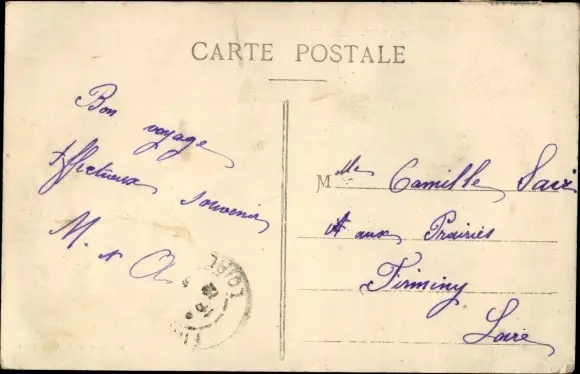 CARTE POSTALE
Bon voyage
Affectueux souvenir
M. & A.
Mlle Camille
aux Prairies
Firminy
Loire
LOIRE